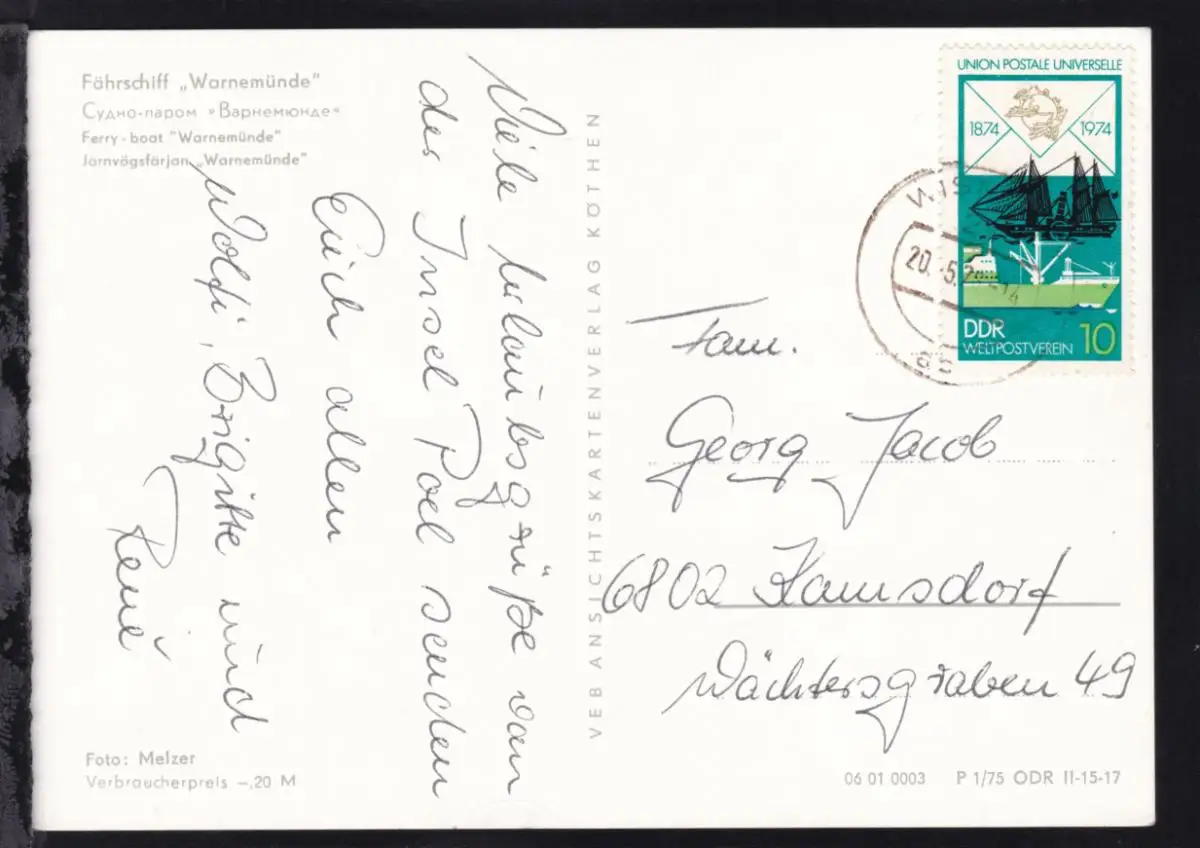 Fährschiff „Warnemünde"
Судно-паром »Варнемюнде«
Ferry-boat "Warnemünde"
Jarnvögsfärjan „Warnemünde"
Viele Urlaubsgrüße von
der Insel Poel senden
Euch allen
Wolfi, Brigitte und
René
Foto: Melzer
Verbraucherpreis –,20 M
VEB ANSICHTSKARTENVERLAG KÖTHEN
UNION POSTALE UNIVERSELLE
1874 1974
DDR
WELTPOSTVEREIN 10
20.-5.
Fam.
Georg Jacob
6802 Kamsdorf
Wächtersgraben 49
06 01 0003 P 1/75 ODR II-15-17